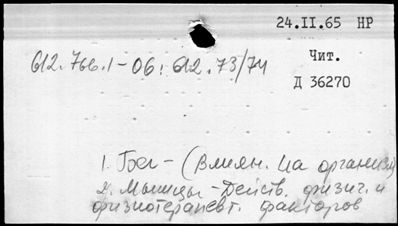 24.II.65 НР
Чит.
612.766.1-06:612.73/74
Д 36270
1. Бег - (Влиян. на организм)
2. Мышцы - Действ. физич. и
физиотерапевт. факторов